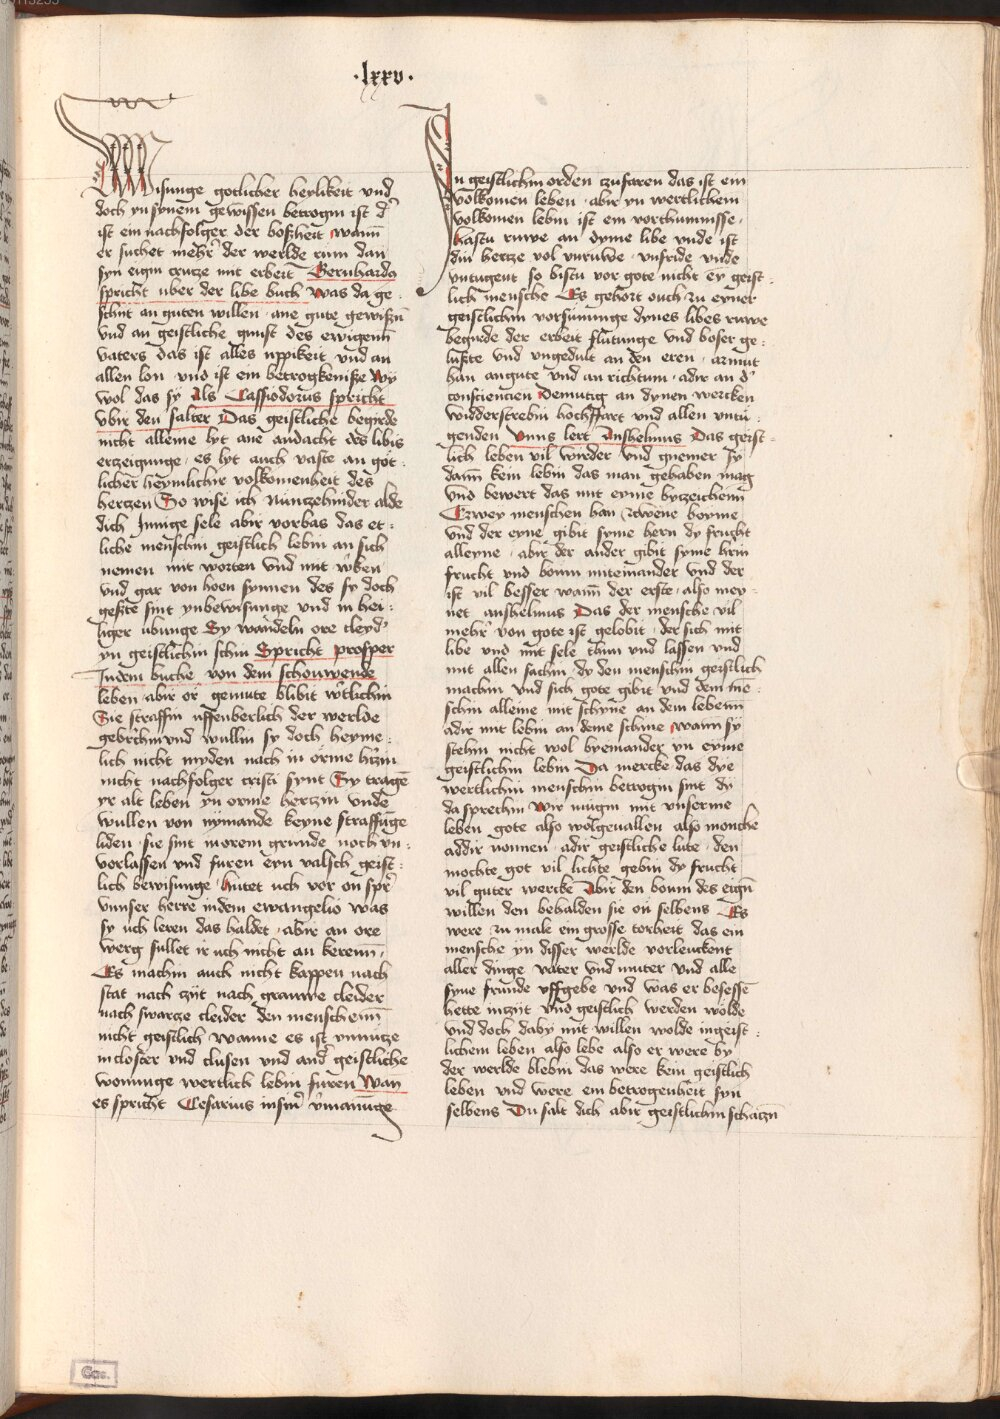 ·lxxv·
Wisunge gotlicher heylikeit vnd
doch yn synem gewissen betrogin ist d'
ist ein nachfolger der boßheit wann
er suchet mehr der werlde rum dan
syn eigin crucze mit erbeit Bernhardus
spricht uber der libe buch Was da ge-
schiit an guten willen ane gute gewißin
vnd an geistliche gunst des ewigenn
vaters das ist alles uppikeit vnd an
allen lon vnd ist ein betrogkeniße Wy
wol das sy Als Cassiodorus spricht
vbir den salter Das geistliche begirde
nicht alleine lyt ane andacht des libis
erczeigunge es lyt auch vaste an got-
licher heymlichir volkomenheit des
herczen So wise ich Nuntzehinder alde
dich Innige sele abir vorbas das et-
liche menschin geistlich lebin an sich
nemen mit worten vnd mit w'ken
vnd gar von hoen synnen des sy doch
geßte sint yn bewisunge vnd in hei-
liger ubunge Sy wandeln ore cleyd'
yn geistlichin schin Spricht prosper
In dem buche von dem schouwende
leben abir or gemute blibit w'tlichin
Sie straffin uffenberlich der werlde
gebrechin vnd wullin sy doch heyme-
lich nicht myden nach in orme hirczin
nicht nachfolger cristi synt Sy trage
yr alt leben yn orme herczin vnde
wullen von nymande keyne straffuge
liden sie sint in orem grunde noch vn-
vorlassen vnd furen eyn valsch geist-
lich bewisunge hutet uch vor on spr'
vnnser herre in dem ewangelio was
sy uch leren das haldet abir an ore
werg sullet ir uch nicht an kerenn
Es machin auch nicht kappen nach
stat nach zyt nach grauwe cleider
nach swarcze cleider den menscheinn
nicht geistlich wanne es ist vnnutze
in closter vnd clusen vnd and' geistliche
wonunge wertlich lebin furen Wan
es spricht Cesarius in sin' v'manunge
In geistlichin orden czufaren das ist ein
volkomen leben abir yn wertlichem
volkomen lebin ist ein vorthumnisse
hastu ruwe an dyme libe vnde ist
din hertze vol vnruwe vnfride vnde
vntugent so bistu vor gote nicht ey geist-
lich mensche Es gehort ouch zu eyner
geistlichin vorsununge dynes libes ruwe
begirde der erbeit flutunge vnd boser ge-
luste vnd vngedult an den eren armut
han an gute vnd an richtum adir an d'
consciencien Demutig an dynen wercken
widderstrebin hochffart vnd allen vntu-
genden Vnns lert Anshelmus Das geist-
lich leben vil wirder vnd gnemer sy
dann kein lebin das man gehaben mag
vnd bewert das mit eyme byczeichenn
Czwey menschen han czwene boyme
vnd der eyne gibit syme hern dy frucht
alleyne abir der ander gibit syme hrin
frucht vnd boum miteinander vnd der
ist vil besser wann der erste also mey-
net anshelmus Das der mensche vil
mehr von gote ist gelobit der sich mit
libe vnd mit sele thun vnd lassen vnd
mit allen sachin dy den menschin geistlich
machin vnd sich gote gibit vnd dem me-
schin alleine mit schyne an dem lebenn
adir mit lebin an deme schine wann sy
stehin nicht wol byeinander yn eyme
geistlichin lebin Da mercke das dye
wertlichin menschin betrogin sint dy
da sprechin Wir mugin mit vnserme
leben gote also wolgeuallen also monche
addir nonnen adir geistliche lute den
mochte got vil lichte gebin dy frucht
vil guter wercke Abir den boum des eigin
willen den behalden sie on selbens Es
were zu male ein grosse torheit das ein
mensche yn disser werlde vorleuckent
aller dinge vater vnd muter vnd alle
syne frunde uffgebe vnd was er besesse
hette in zyt vnd geistlich werden wolde
vnd doch daby mit willen wolde in geist-
lichem leben also lebe also er were by
der werlde blebin das were kein geistlich
leben vnd were ein betrogenheit syn
selbens Du salt dich abir geistlichin schaczin